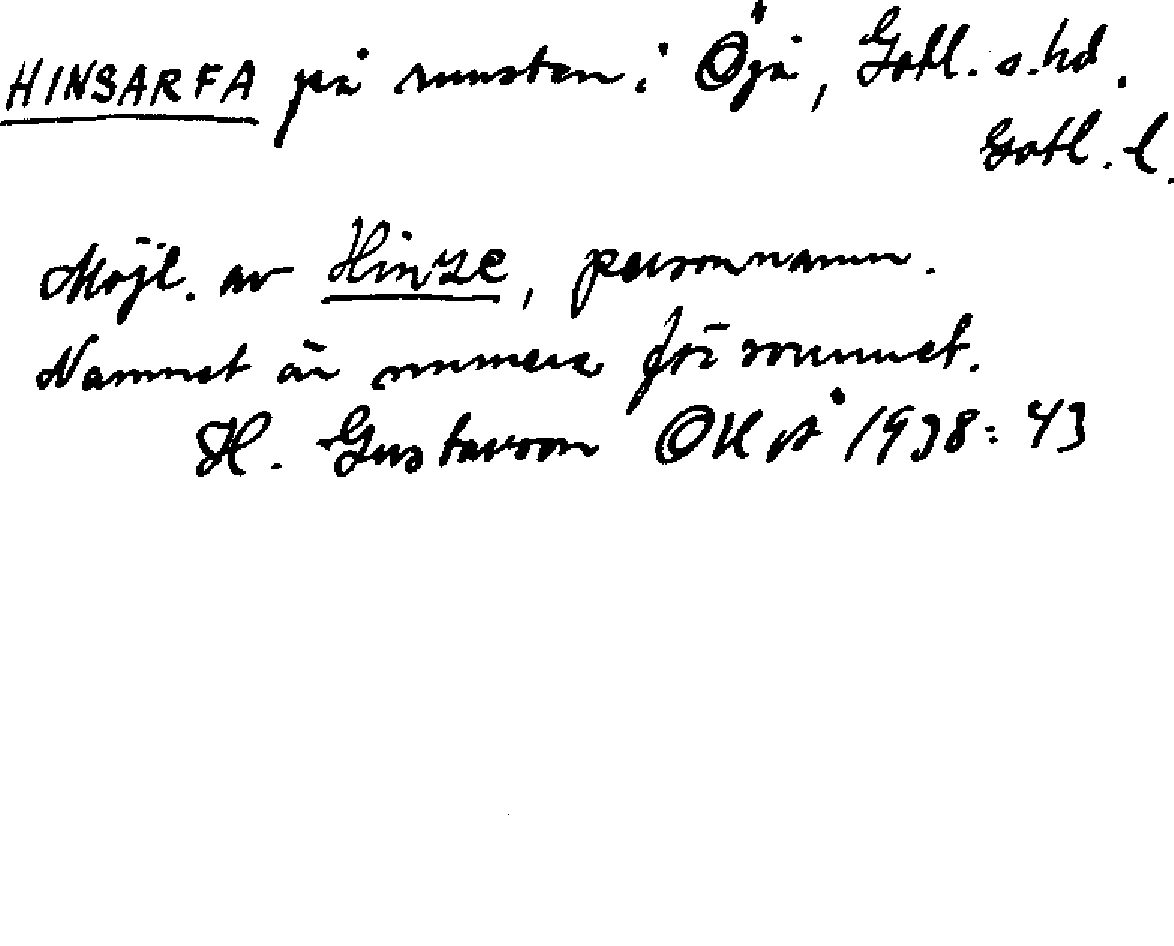 HINSARFA på runsten i Öja, Gotl. s. hd.
Gotl. l.
Möjl. av Hinze, personnamn.
Namnet är numera försvunnet.
H. Gustavson OK på 1938: 43